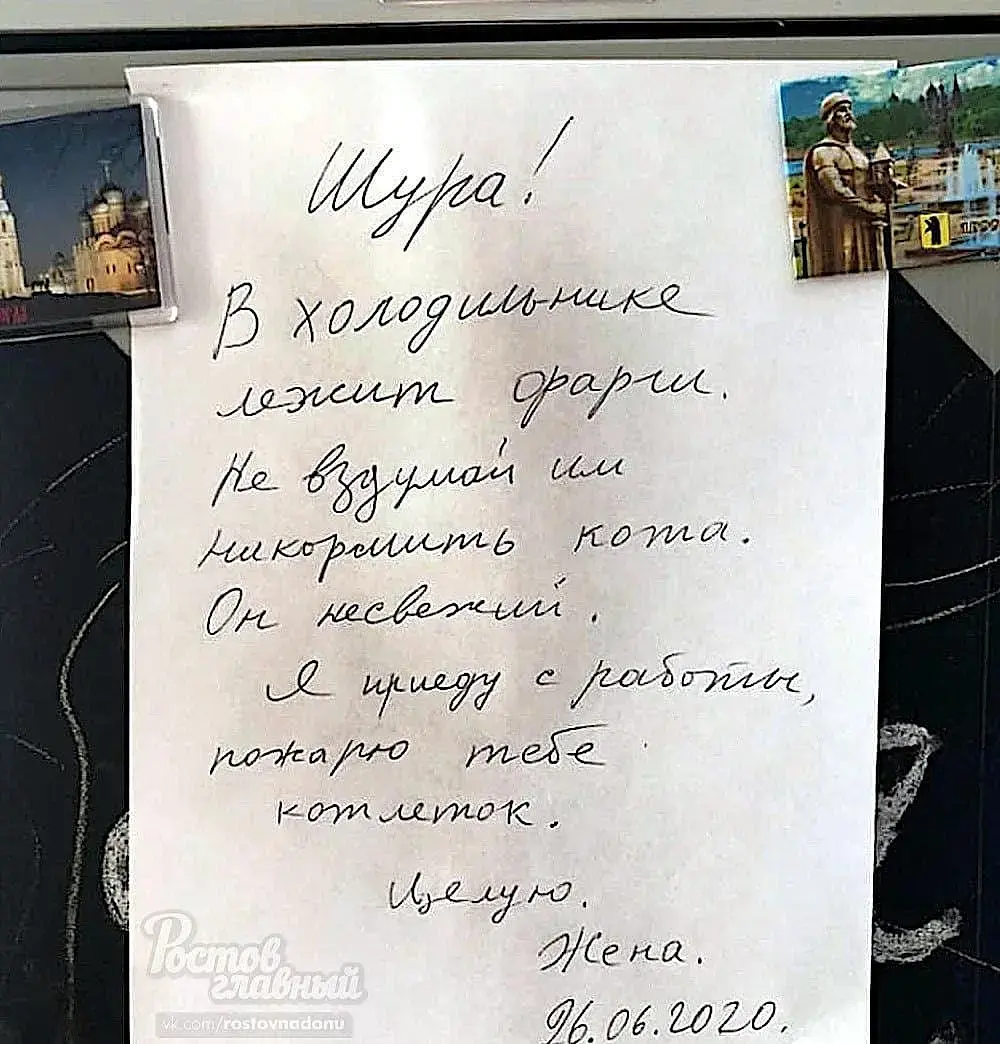 Шура!
В холодильнике
лежит фарш.
Не вздумай им
накормить кота.
Он несвежий.
Я приеду с работы,
пожарю тебе
котлеток.
Целую.
Жена.
26.06.2020.
Ростов
главный
vk.com/rostovnadonu